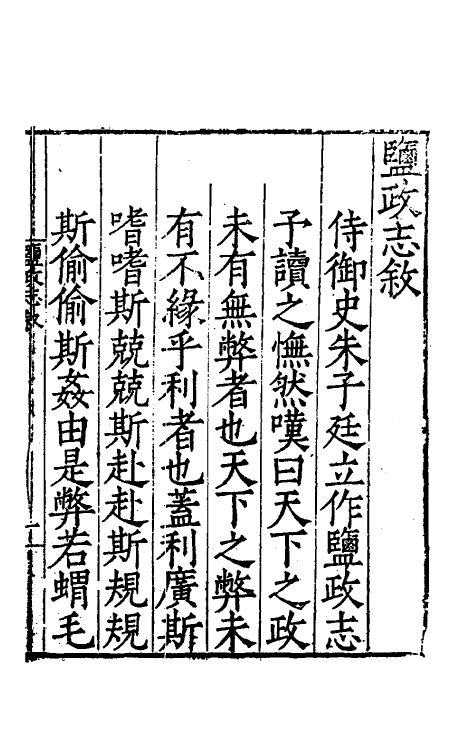 鹽政志敘
侍御史朱子廷立作鹽政志
予讀之憮然嘆曰天下之政
未有無弊者也天下之弊未
有不緣乎利者也蓋利廣斯
嗜嗜斯兢兢斯赴赴斯規規
斯偷偷斯姦由是弊若蝟毛
鹽政志敘